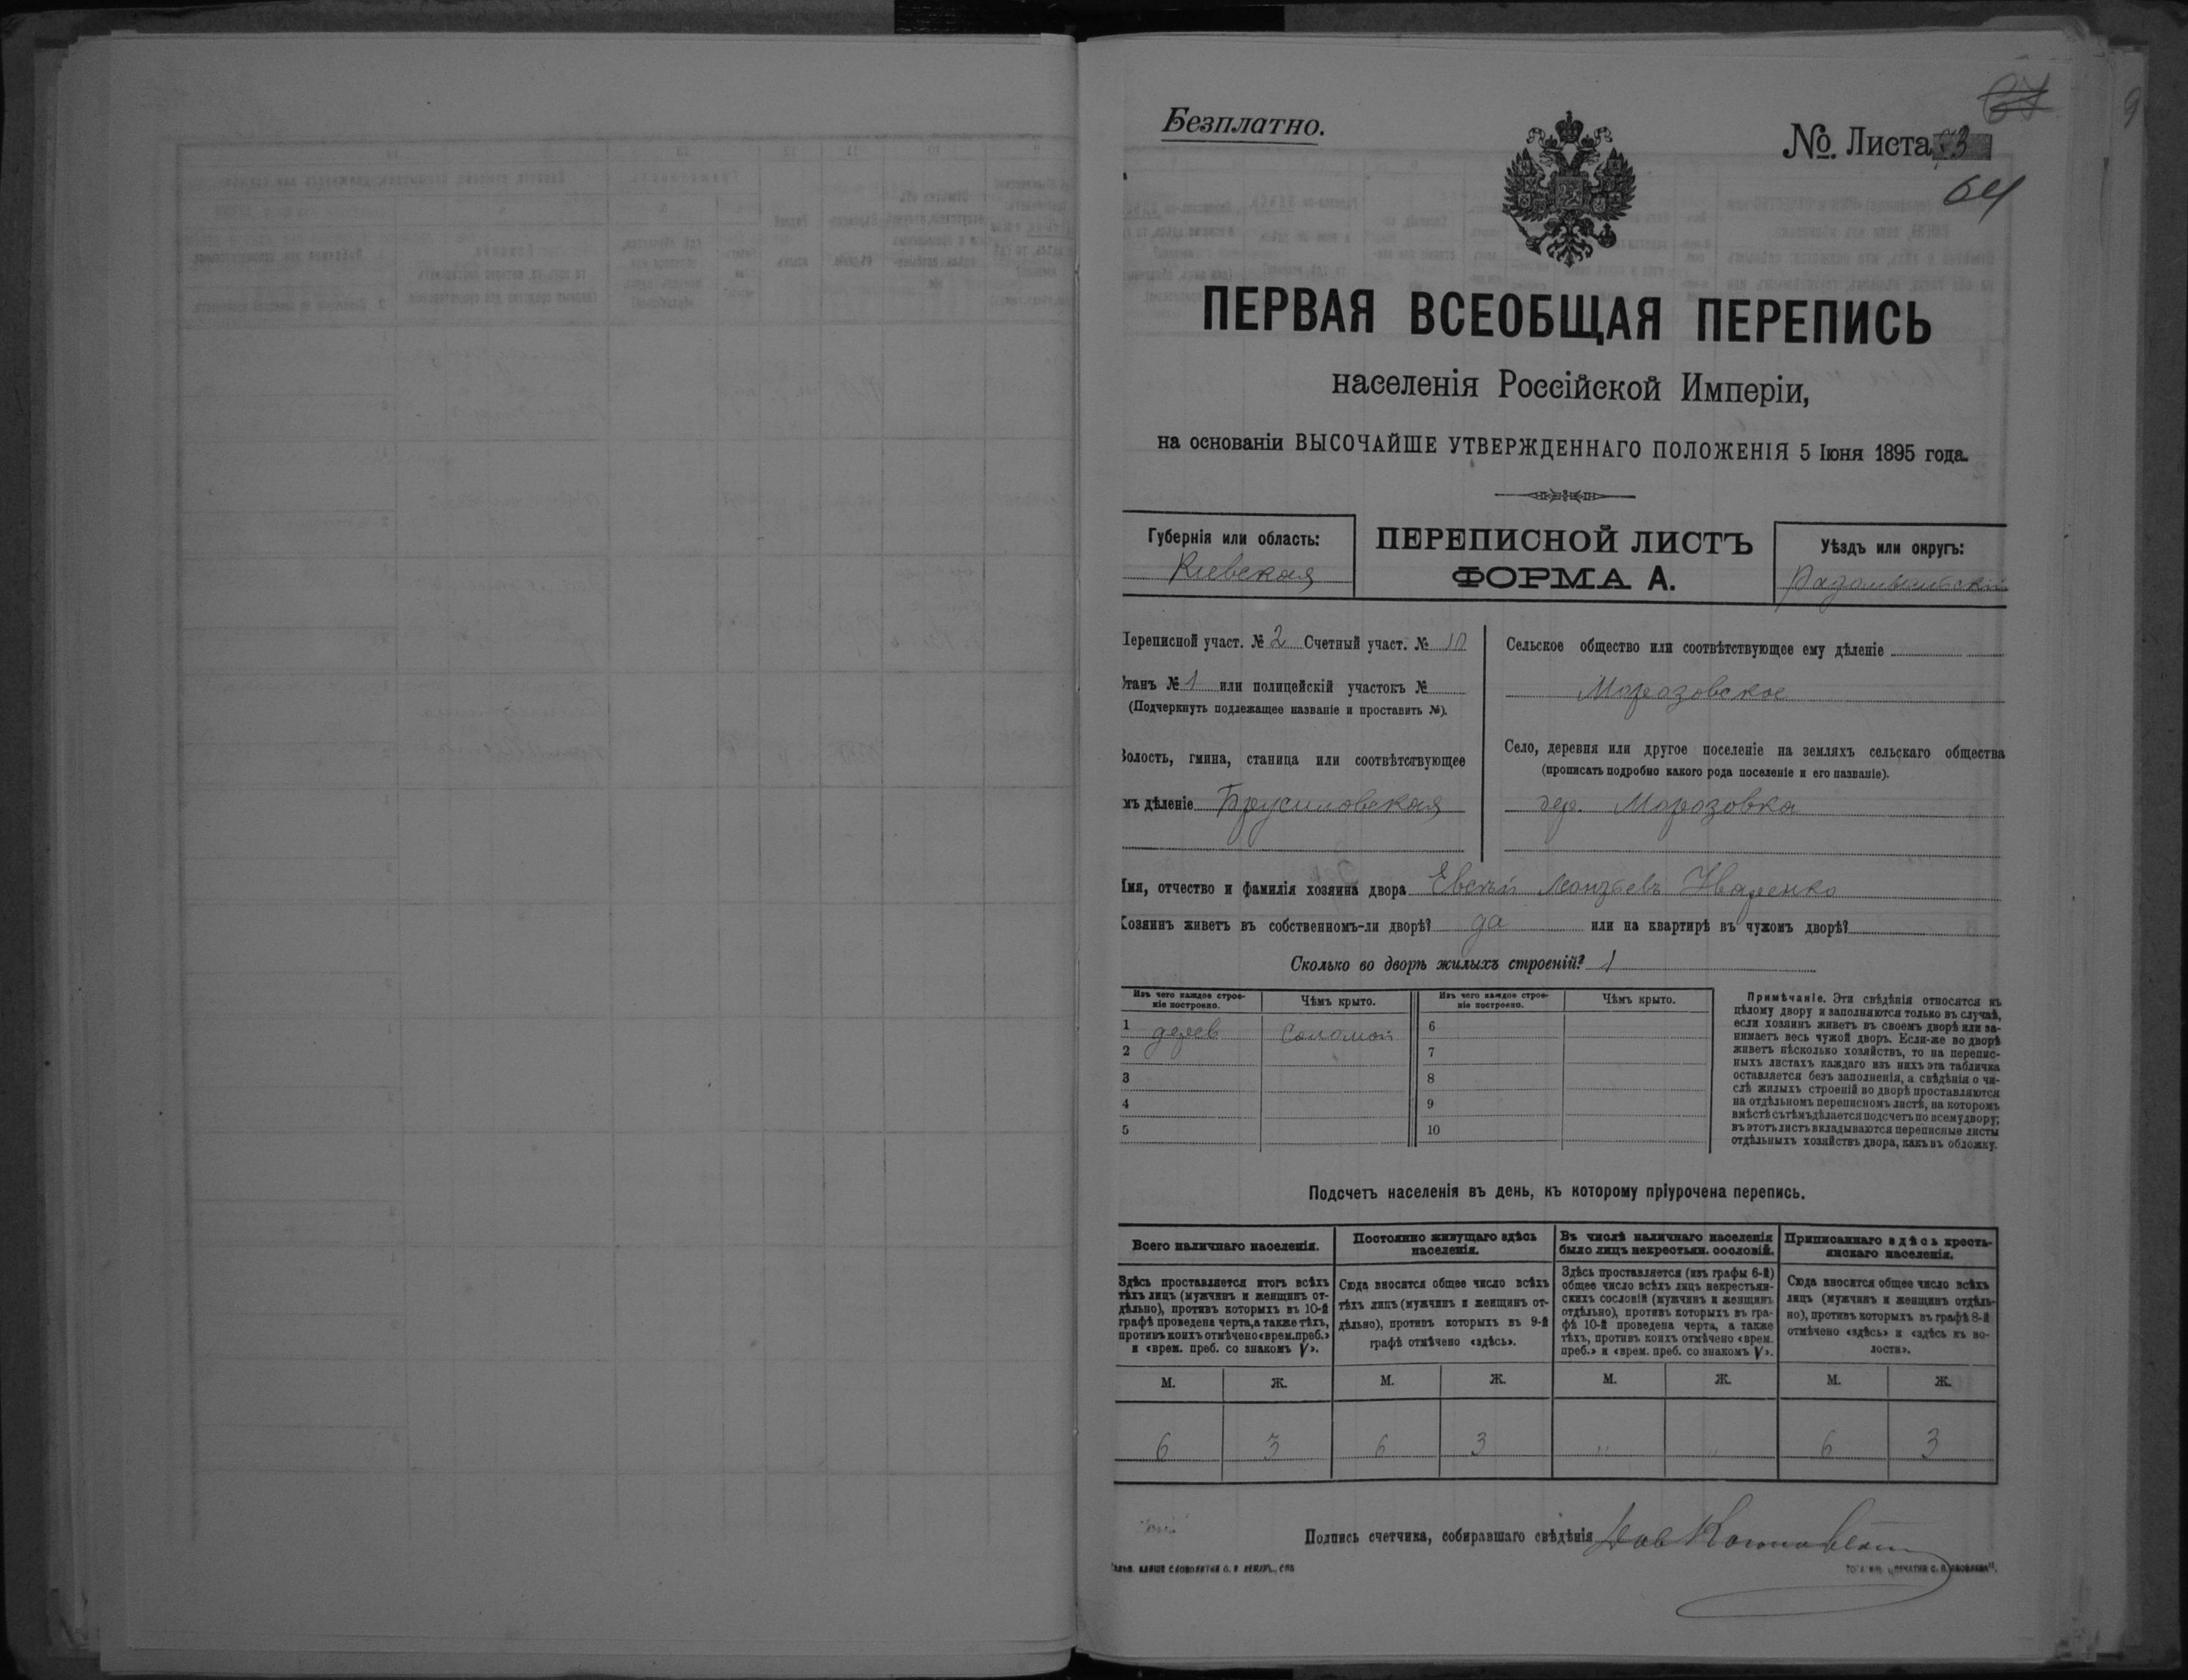 Безплатно.
№. Листа 3
67
64
ПЕРВАЯ ВСЕОБЩАЯ ПЕРЕПИСЬ
населенія Россійской Имперіи,
на основаніи ВЫСОЧАЙШЕ УТВЕРЖДЕННАГО ПОЛОЖЕНІЯ 5 Іюня 1895 года.
Губернія или область:
Киевская
ПЕРЕПИСНОЙ ЛИСТЪ
ФОРМА А.
Уѣздъ или округъ:
Радомысльскій
Переписной участ. № 2 Счетный участ. № 10
Станъ № 1 или полицейскій участокъ №
(Подчеркнуть подлежащее названіе и проставить №).
Волость, гмина, станица или соотвѣтствующее
мъ дѣленіе Брусиловская
Сельское общество или соотвѣтствующее ему дѣленіе
Морозовское
Село, деревня или другое поселеніе на земляхъ сельскаго общества
(прописать подробно какого рода поселеніе и его названіе).
дер. Морозовка
Имя, отчество и фамилія хозяина двора Евсѣй Леонтьевъ
Хозяинъ живетъ въ собственномъ-ли дворѣ? да или на квартирѣ въ чужомъ дворѣ?
Сколько во дворѣ жилыхъ строеній? 1
Изъ чего каждое строе-
ніе построено.
Чѣмъ крыто.
Изъ чего каждое строе-
ніе построено.
Чѣмъ крыто.
1 дерев Соломой 6
2 7
3 8
4 9
5 10
Примѣчаніе. Эти свѣдѣнія относятся къ
цѣлому двору и заполняются только въ случаѣ,
если хозяинъ живетъ въ своемъ дворѣ или за-
нимаетъ весь чужой дворъ. Если-же во дворѣ
живетъ нѣсколько хозяйствъ, то на перепис-
ныхъ листахъ каждаго изъ нихъ эта табличка
оставляется безъ заполненія, а свѣдѣнія о чи-
слѣ жилыхъ строеній во дворѣ проставляются
на отдѣльномъ переписномъ листѣ, на которомъ
вмѣстѣ съ тѣмъ дѣлается подсчетъ по всему двору;
въ этотъ листъ вкладываются переписные листы
отдѣльныхъ хозяйствъ двора, какъ въ обложку.
Подсчетъ населенія въ день, къ которому пріурочена перепись.
Всего наличнаго населенія.
Здѣсь проставляется итогъ всѣхъ
тѣхъ лицъ (мужчинъ и женщинъ от-
дѣльно), противъ которыхъ въ 10-й
графѣ проведена черта, а также тѣхъ,
противъ коихъ отмѣчено «врем. преб.»
и «врем. преб. со знакомъ V».
Постоянно живущаго здѣсь
населенія.
Сюда вносится общее число всѣхъ
тѣхъ лицъ (мужчинъ и женщинъ от-
дѣльно), противъ которыхъ въ 9-й
графѣ отмѣчено «здѣсь».
Въ числѣ наличнаго населенія
было лицъ некрестьян. сословій.
Здѣсь проставляется (изъ графы 6-й)
общее число всѣхъ лицъ некрестьян-
скихъ сословій (мужчинъ и женщинъ
отдѣльно), противъ которыхъ въ гра-
фѣ 10-й проведена черта, а также
тѣхъ, противъ коихъ отмѣчено «врем.
преб.» и «врем. преб. со знакомъ V».
Приписаннаго здѣсь кресть-
янскаго населенія.
Сюда вносится общее число всѣхъ
лицъ (мужчинъ и женщинъ отдѣль-
но), противъ которыхъ въ графѣ 8-й
отмѣчено «здѣсь» и «здѣсь къ во-
лости».
М. Ж. М. Ж. М. Ж. М. Ж.
6 3 6 3 " " 6 3
Подпись счетчика, собиравшаго свѣдѣнія